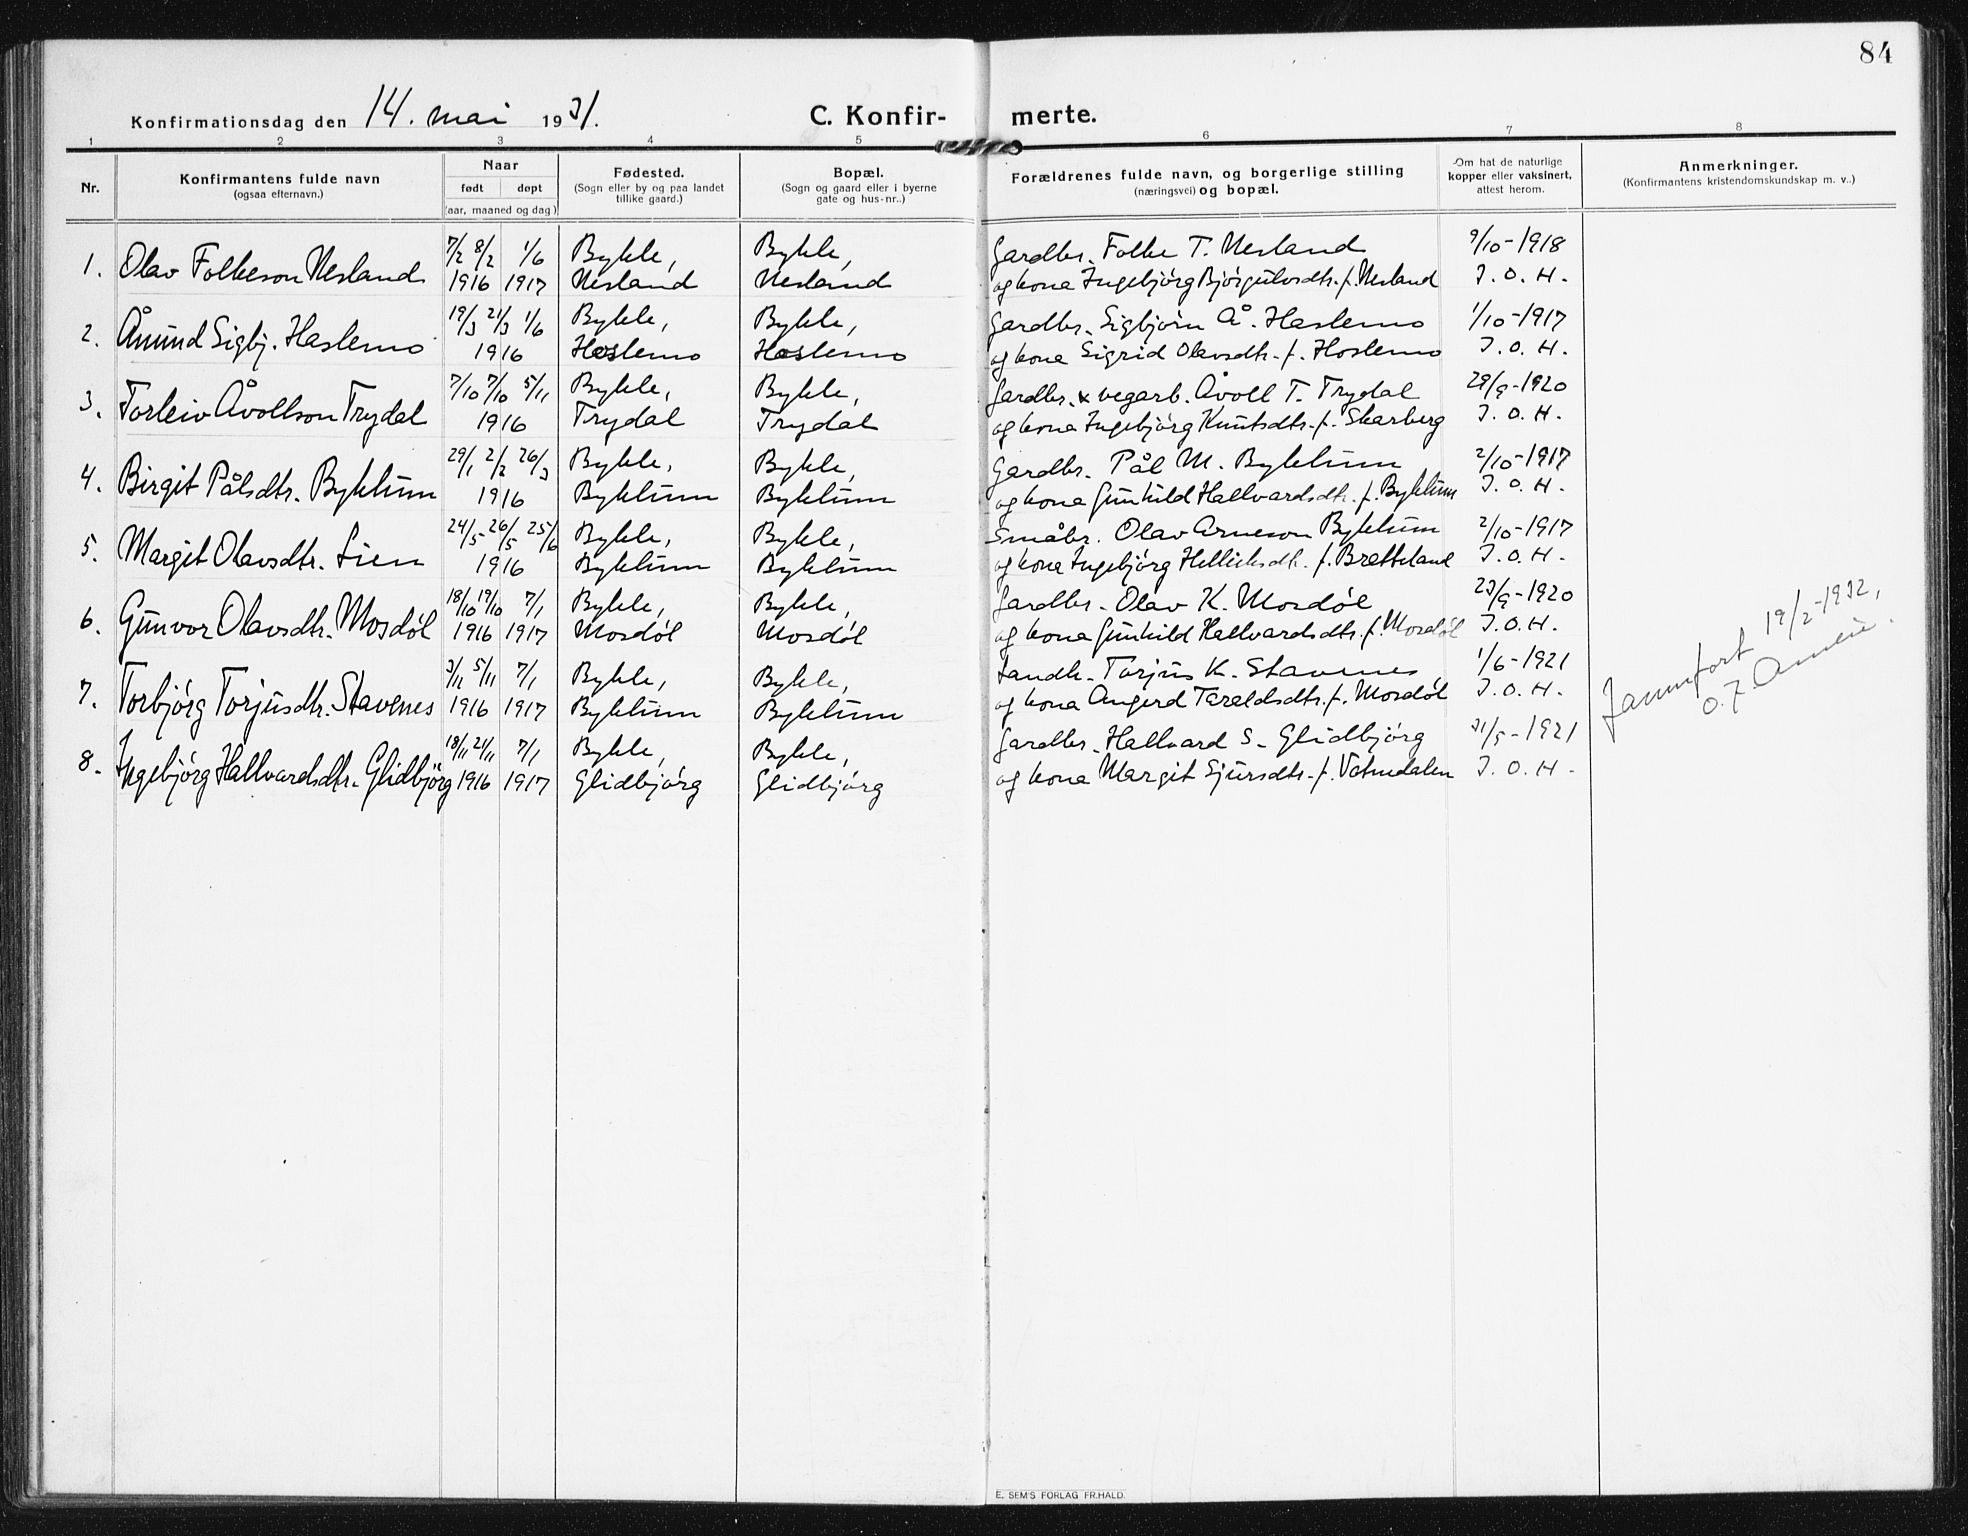 84
Konfirmationsdag den 14. mai 1931.
C. Konfirmerte.
1 2 3 4 5 6 7 8
Nr.
Konfirmantens fulde navn
(ogsaa efternavn.)
Naar
født døpt
(aar, maaned og dag)
Fødested.
(Sogn eller by og paa landet
tillike gaard.)
Bopæl.
(Sogn og gaard eller i byerne
gate og hus-nr..)
Forældrenes fulde navn, og borgerlige stilling
(næringsvei) og bopæl.
Om hat de naturlige
kopper eller vaksinert,
attest herom.
Anmerkninger.
(Konfirmantens kristendomskundskap m. v..)
7/2 8/2 1/6 Bykle, Bykle, Gardbr. Folke T. Nesland 9/10-1918
1. Olav Folkeson Nesland 1916 1917 Nesland Nesland og kona Ingebjørg Bjørgulvsdtr. f. Nesland J. O. H.
19/3 21/3 1/6 Bykle, Bykle, Gardbr. Sigbjørn Å. Hoslemo 1/10-1917
2. Åmund Sigbj. Hoslemo 1916 Hoslemo Hoslemo og kona Sigrid Olavsdtr. f. Hoslemo J. O. H.
7/10 7/10 5/11 Bykle, Bykle, Gardbr. & vegarb. Åvoll T. Trydal 29/9-1920
3. Torleiv Åvollson Trydal 1916 Trydal Trydal og kona Ingebjørg Knutsdtr. f. Skarberg J. O. H.
29/1 2/2 26/3 Bykle, Bykle, Gardbr. Pål M. Byklum 2/10-1917
4. Birgit Pålsdtr. Byklum 1916 Byklum Byklum og kona Gunhild Hallvardsdtr. f. Byklum J. O. H.
24/5 26/5 25/6 Bykle, Bykle, Småbr. Olav Arneson Byklum 2/10-1917
5. Margit Olavsdtr. Lien 1916 Byklum Byklum og kona Ingebjørg Helliksdtr. f. Bratteland J. O. H.
18/10 19/10 7/1 Bykle, Bykle, Gardbr. Olav K. Mosdøl 23/9-1920
6. Gunvor Olavsdtr. Mosdøl 1916 1917 Mosdøl Mosdøl og kona Gunhild Hallvardsdtr. f. Mosdøl J. O. H.
3/11 5/11 7/1 Bykle, Bykle, Landh. Torjus K. Stavenes 1/6-1921
7. Torbjørg Torjusdtr. Stavenes 1916 1917 Byklum Byklum og kona Angerd Taraldsdtr. f. Mosdøl J. O. H.
18/11 21/11 7/1 Bykle, Bykle, Gardbr. Hallvard S. Glidbjørg 31/5-1921
8. Ingebjørg Hallvardsdtr. Glidbjørg 1916 1917 Glidbjørg Glidbjørg og kona Margit Sjursdtr. f. Vatnedalen J. O. H.
Jamnført 19/2-1932,
O. F.
E. SEM'S FORLAG FR.HALD.